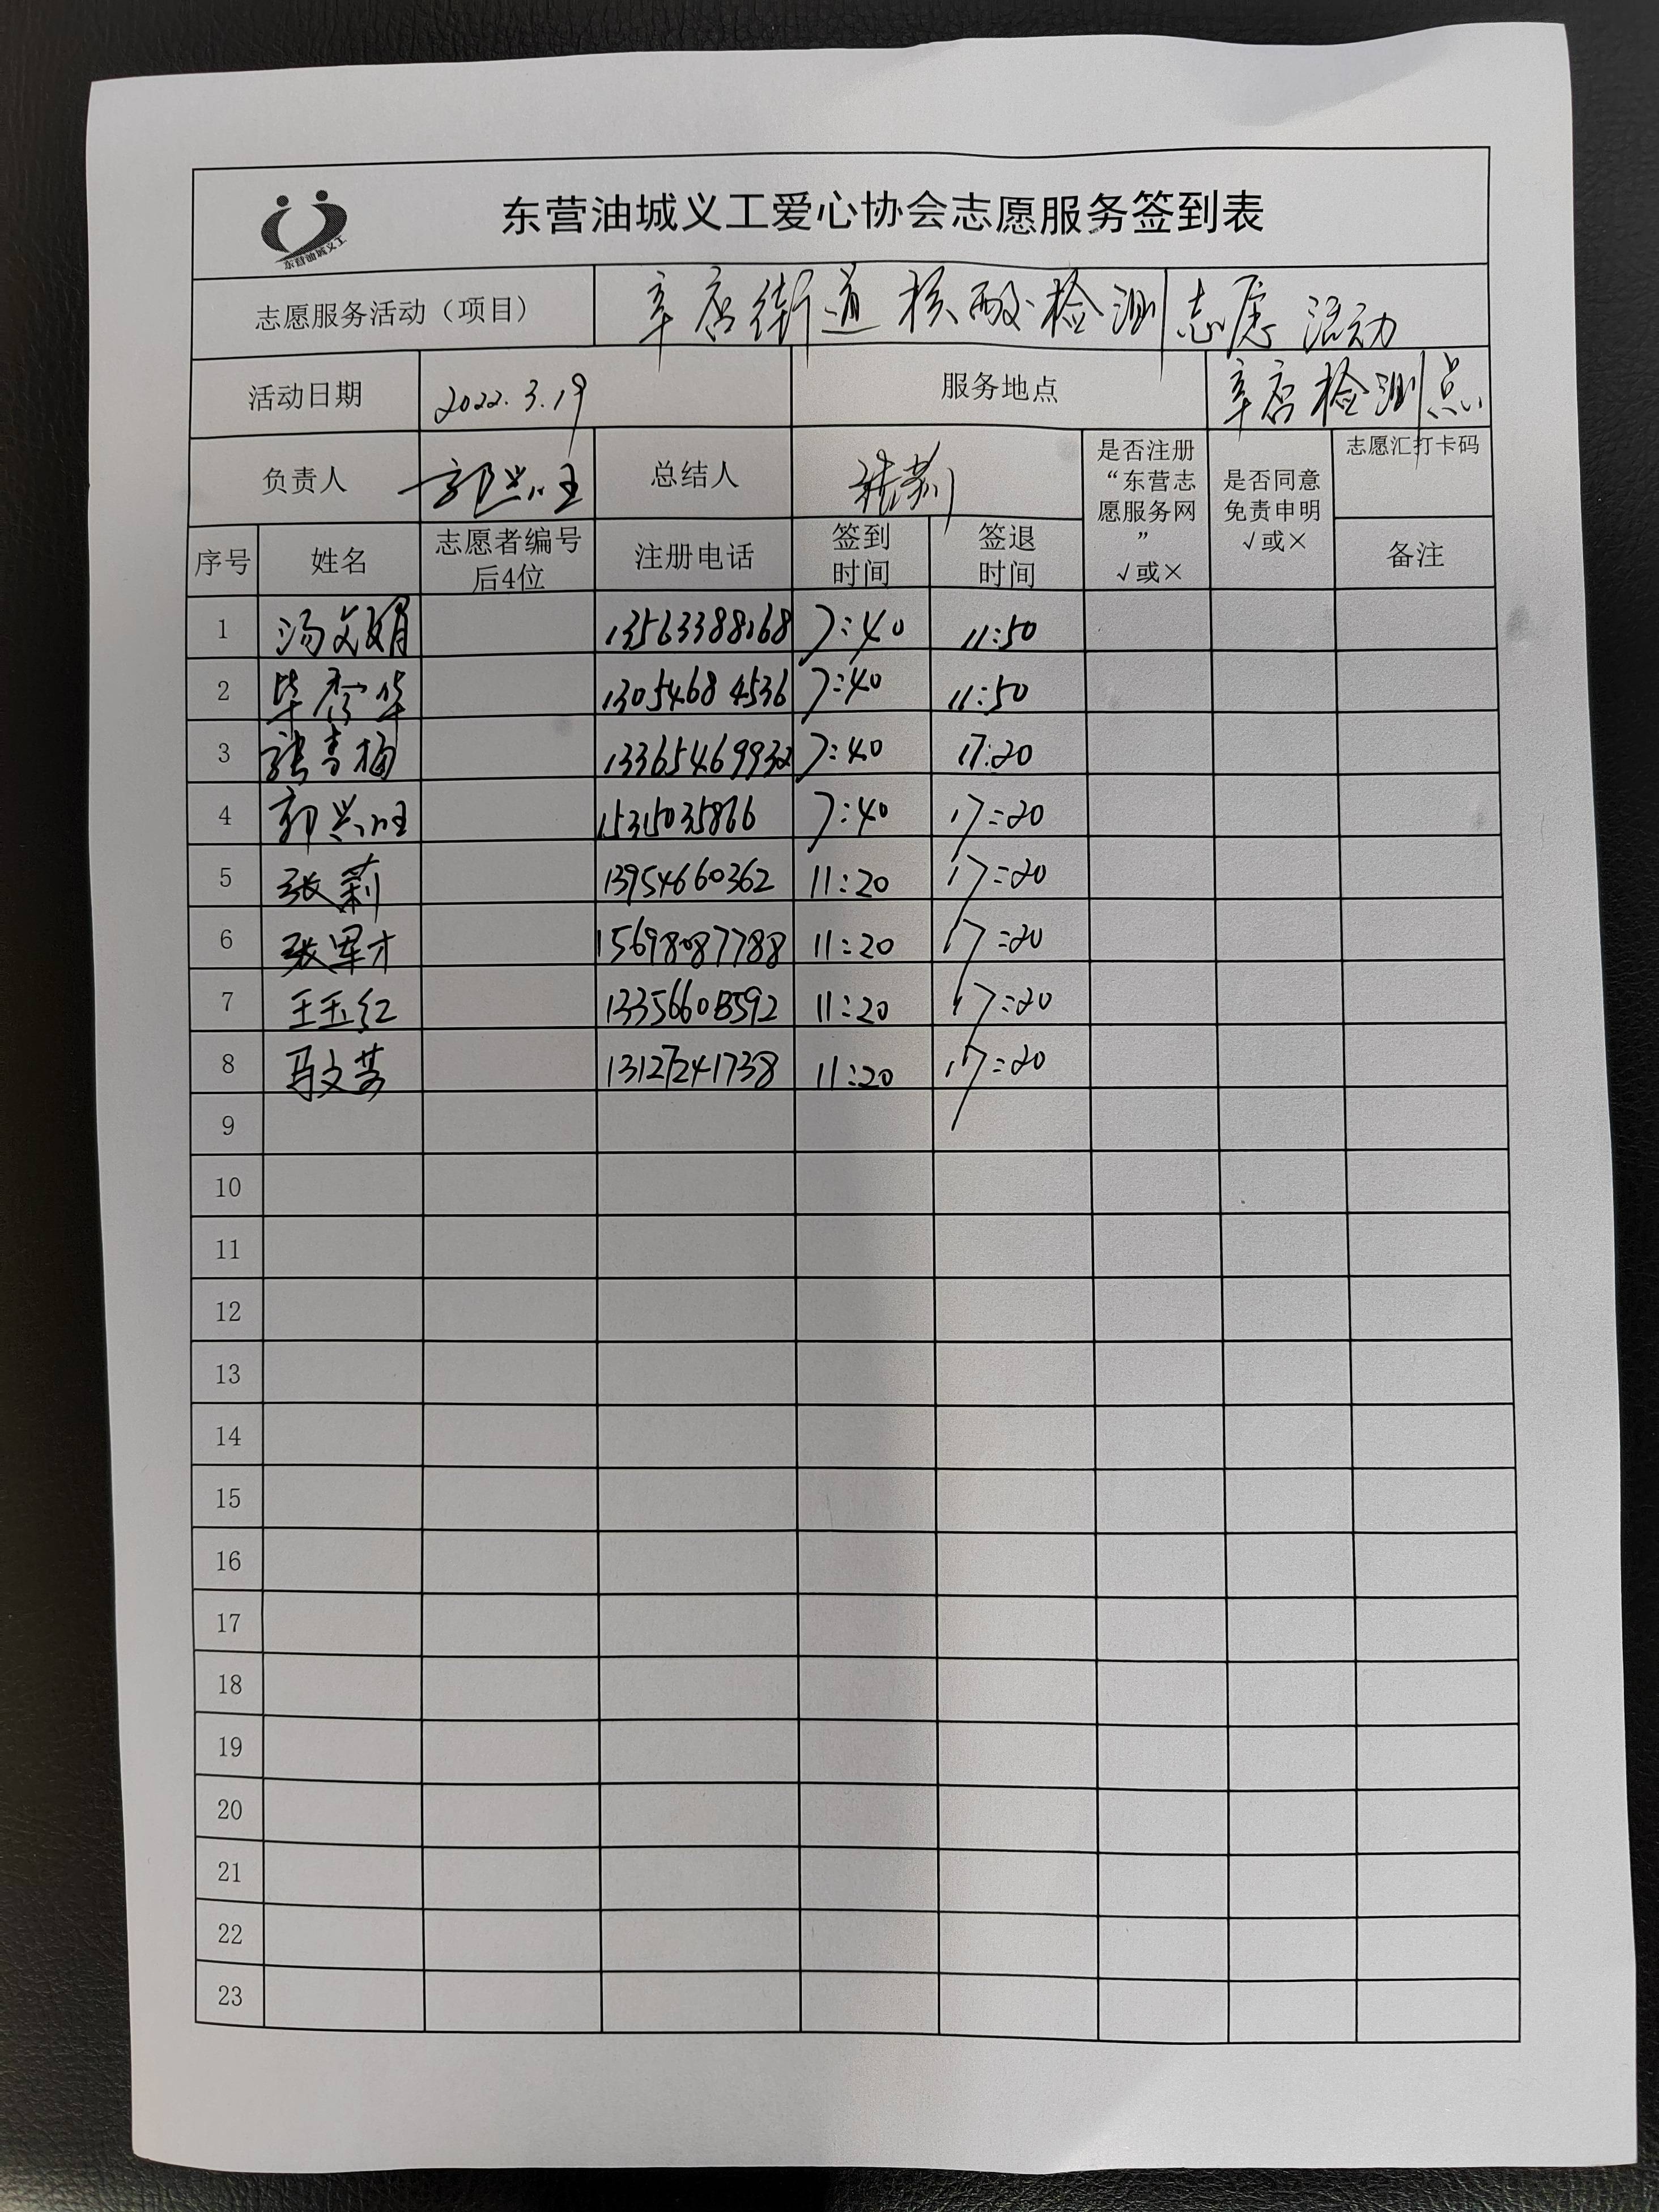 东营油城义工爱心协会志愿服务签到表
东营油城义工
志愿服务活动（项目） 辛店街道核酸检测志愿活动
活动日期 2022.3.19 服务地点 辛店检测点
负责人 郭兴旺 总结人 张莉 是否注册“东营志愿服务网” √或× 是否同意免责申明 √或× 志愿汇打卡码
序号 姓名 志愿者编号后4位 注册电话 签到时间 签退时间 备注
1 汤文娟 13563388168 7:40 11:50
2 毕秀华 13054684536 7:40 11:50
3 张青梅 13365469932 7:40 17:20
4 郭兴旺 15315035866 7:40 17:20
5 张莉 13954660362 11:20 17:20
6 张军才 15698087788 11:20 17:20
7 王玉红 11:20 17:20
8 马文芳 13127241738 11:20 17:20
9
10
11
12
13
14
15
16
17
18
19
20
21
22
23